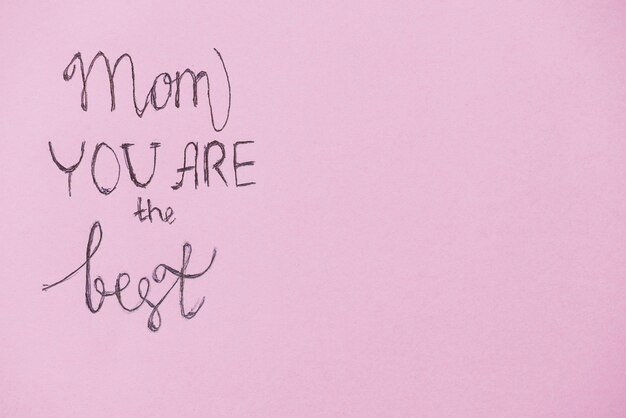 Mom
YOU ARE
the
best